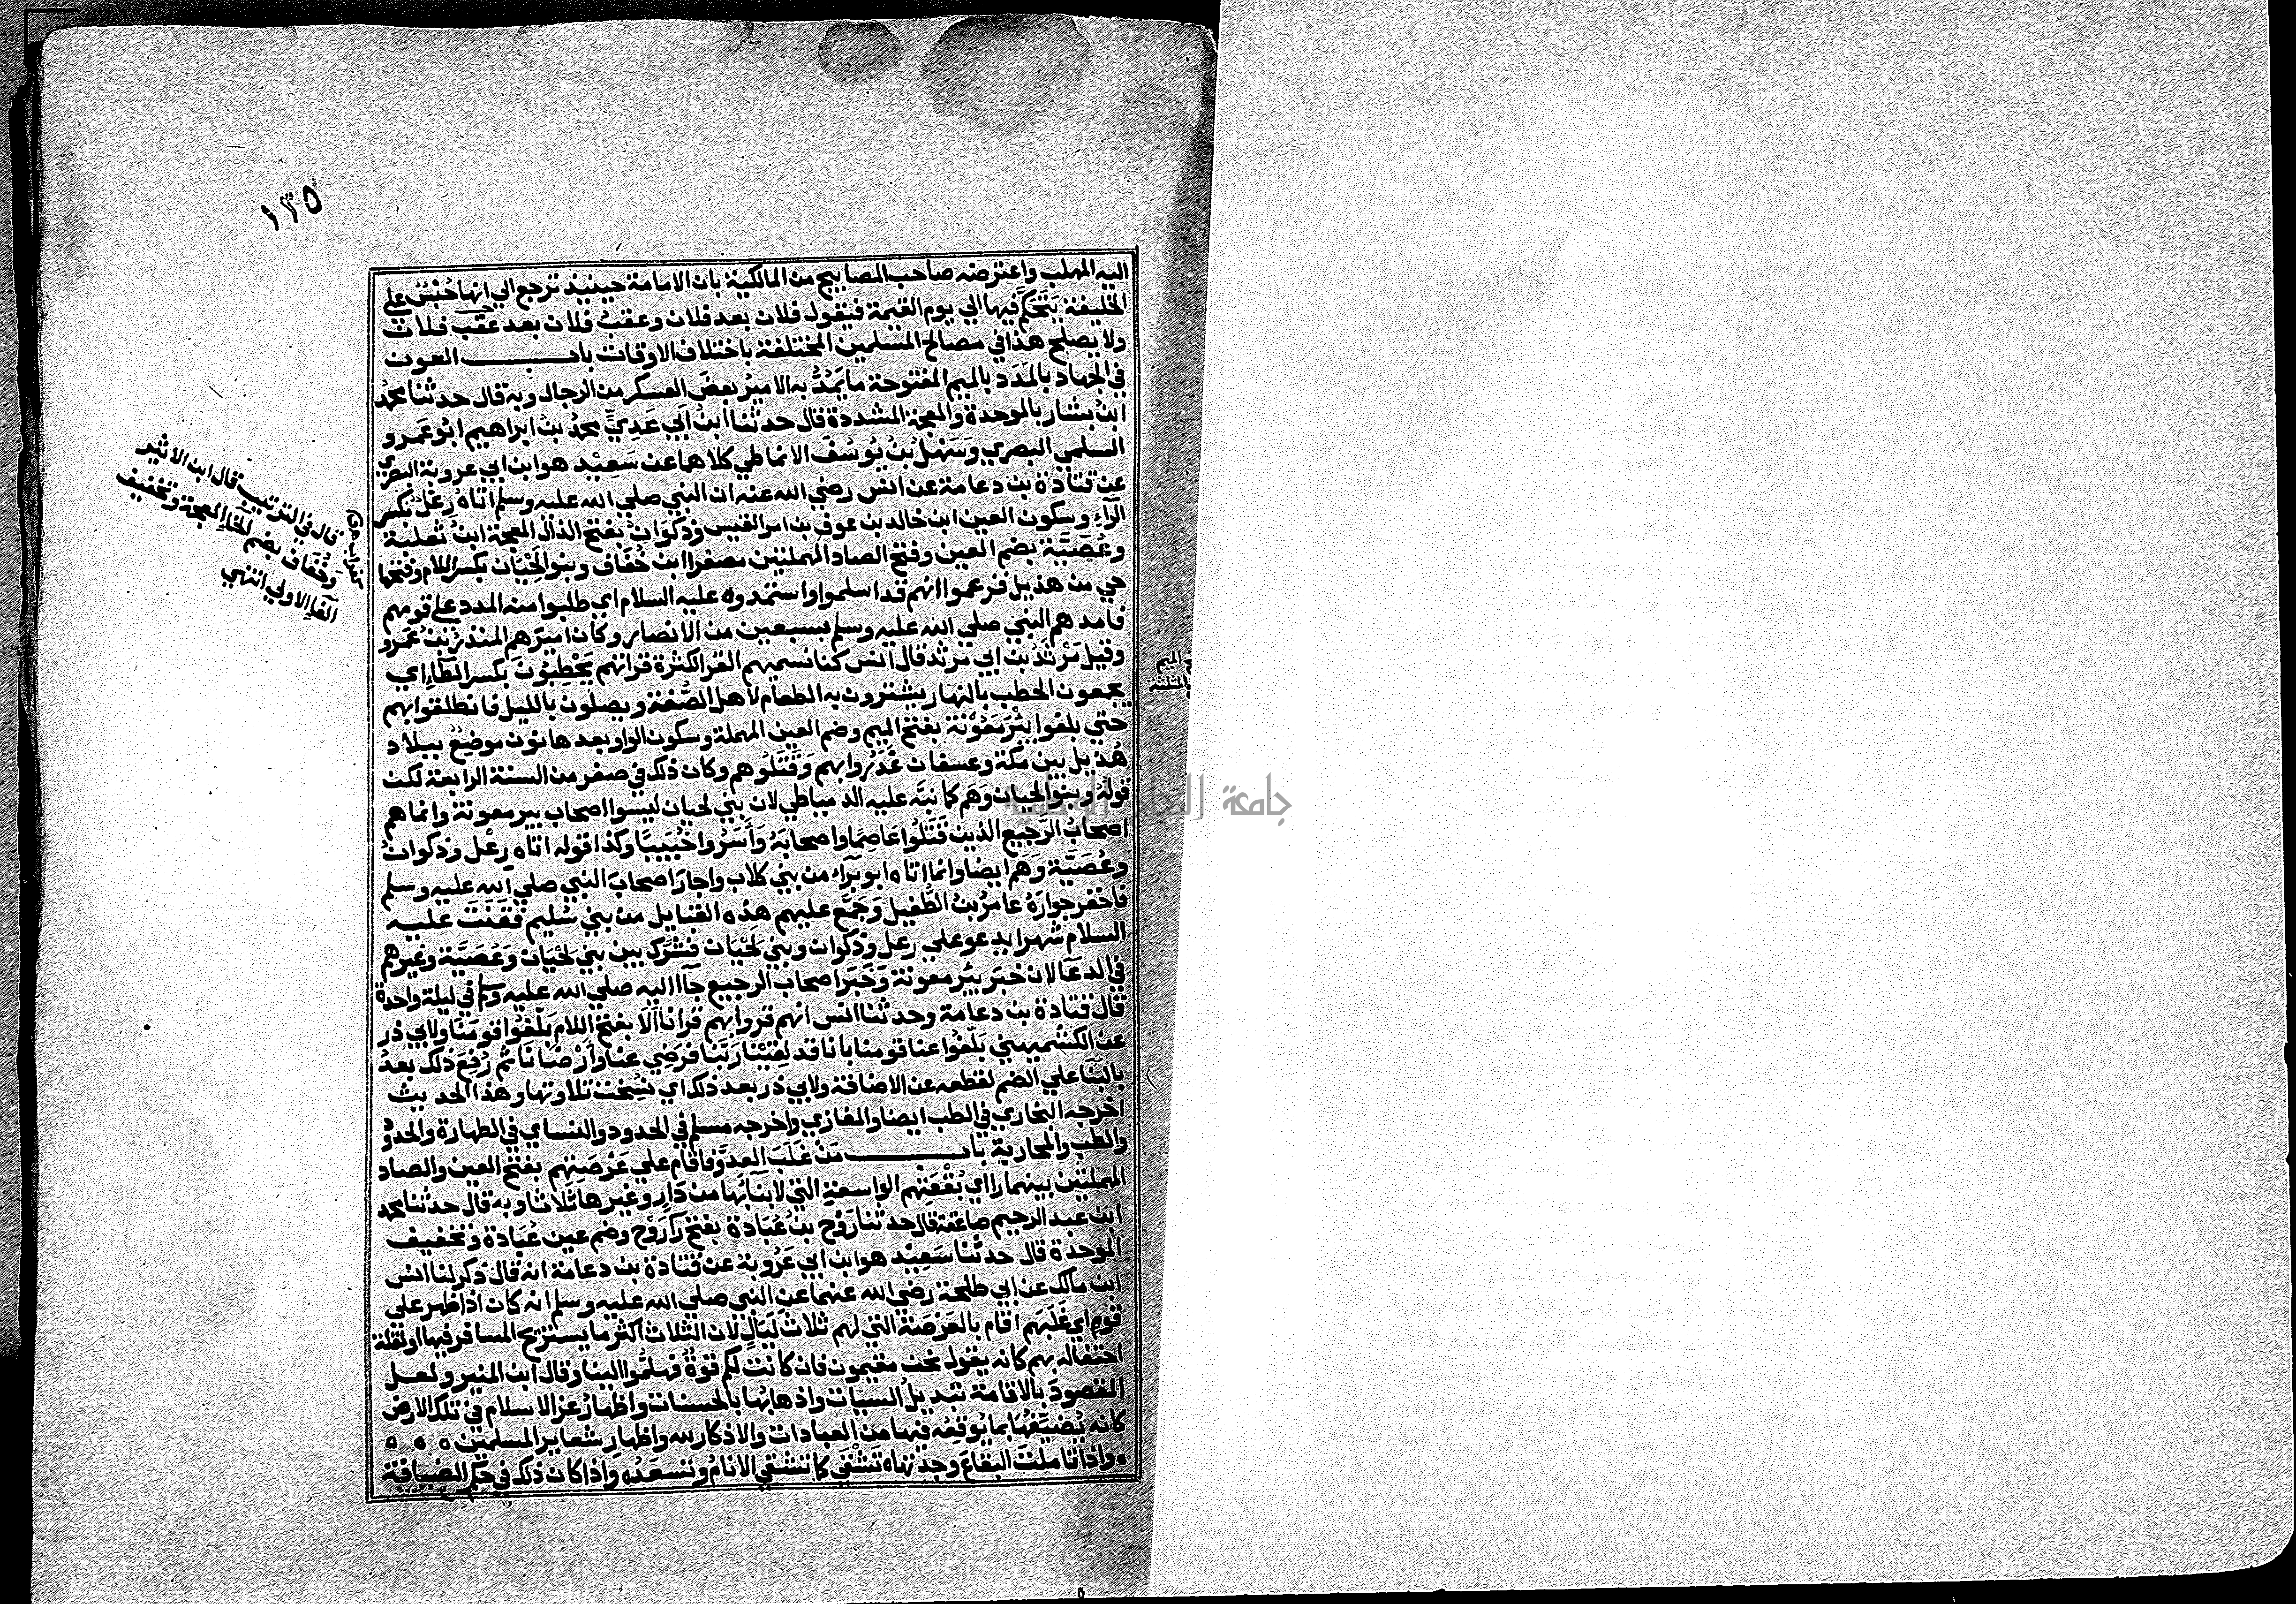 ١٣٥
اليه المهلب واعترضه صاحب المصابيح من المالكية بان الامامة حينيذ ترجع الي انها حُبُسٌ علي
الخليفة يَتَحكَّم فيها الي يوم القيمة فيقول فلان بعد فلان وعقبُ فلان بعد عقب فلان
ولا يصلح هذا في مصالح المسلمين المختلفة باختلاف الاوقات باب العون
في الجهاد بالمَدَد بالميم المفتوحة ما يَمُدُّ به الامير بعضَ العسكر من الرجال وبه قال حدثنا محمد
ابنُ بشار بالموحدة والمعجمة المشددة قال حدثنا ابنُ اَبي عَدِيٍّ محمد بن ابراهيم ابو عَمرو
السلمي البصري وَسَهْلُ بنُ يُوسُفَ الانماطي كلاهما عن سَعِيْد هو ابن ابي عروبة البصري
عن قتَادَة بن دعامة عن انس رضي الله عنه ان النبي صلي الله عليه وسلم اتاه رِعْلٌ بكسر
الرآء وسكون العين ابن خالد بن عوف بن امر القيس وذكوَان بفتح الذال المعجمة ابنُ ثعلبة
وعُصَيَّة بضم العين وفتح الصاد المهملتين مصغرا ابن خُفَاف وبنو لِحْيَان بكسر اللام وفتحها
حي من هذيل فزعموا انهم قد اسلموا واستمدوه عليه السلام اي طلبوا منه المدد علي قومهم
فامدهم النبي صلي الله عليه وسلم بسبعين من الانصار وكان اميرَهم المنذرُ بنُ عَمرو
وقيل مَرْثَدُ بن ابي مرثد قال انس كنا نسميهم القرا لكثرة قراتهم يَحْطِبُوْنَ بكسر الطَّاءِ اي
يجمعون الحطب بالنهار يشترون به الطعام لاهل الصُّفة ويصلون بالليل فانطلقوا بهم
حتي بلغوا بِئْرَ مَعُوْنَة بفتح الميم وضم العين المهملة وسكون الواو بعدها نون موضعٌ ببلاد
هُذيل بين مكة وعسفان غَدَرُوا بهم وَقَتَلُوْهم وكان ذلك في صفر من السنة الرابعة لكن
قولهُ وبنو الحيان وَهَم كما نبَّه عليه الدمياطي لان بني لحيان ليسوا اصحاب بير معونة وانما هم
اصحابُ الرَّجيع الذين قَتَلُوا عَاصِمًا واصحابَهُ وَأَسَرُوا خُبَيبًا وكذا قوله اتاه رِعْل وذكوان
وعُصَيَّة وَهَم ايضا وانما اتاه ابو بَرَآء من بني كلاب واجارَ اصحابَ النبي صلي الله عليه وسلم
فاخفر جوارَهُ عامرُ بنُ الطُّفيل وَجَمَّع عليهم هذه القبايل من بني سُليم فَقَنَتَ عليه
السلام شهرا يدعو علي رِعل وذكوان وبني لَحْيَان فشَرَّك بين بني لحيَان وَعُصَيَّة وغيرهم
في الدعَآ لان خبرَ بئر معونة وَخَبَر اصحاب الرجيع جآا اليه صلي الله عليه وسلم في ليلة واحدة
قال قتادة بن دعامة وحدثنا انس انهم قروا بهم قرانا ألَا بفتح اللام بَلِّغُوا قومَنا ولابي ذر
عن الكشميهني بَلِّغُوا عنا قومنا بانا قد لَقِيْنَا رَبَّنا فرَضِي عنا وأَرْضَانَا ثم رُفِعَ ذلك بعدُ
بالبنَآ علي الضم لقطعه عن الاضافة ولابي ذر بعد ذلك اي نُسِخت تلاوتها وهذا الحديث
اخرجه البخاري في الطب ايضا والمغازي واخرجه مسلم في الحدود والنساي في الطهارة والحدود
والطب والمحاربة باب مَنْ غَلَبَ العدوَّ فاقام علي عَرْصَتِهم بفتح العين والصاد
المهملتين بينهما را اي بُقْعَتِهم الواسعةِ التي لا بنَآءَ بها من دَارٍ وغيرها ثلاثا وبه قال حدثنا محمد
ابن عبد الرحيم صاعقة قال حدثنا رَوْح بنُ عُبَادَة بفتح رَآ رَوْح وضم عين عُبَادة وتخفيف
الموحدة قال حدثنا سَعِيْد هو ابن ابي عَرُوبة عن قتادة بن دعامة انه قال ذكر لنا انس
ابن مالك عن ابي طلحة رضي الله عنهما عن النبي صلي الله عليه وسلم انه كان اذا ظهر علي
قومٍ اي غَلَبَهم اقام بالعَرْصَةِ التي لهم ثلاث لَيَالٍ لان الثلاث اكثر ما يستريح المسافر فيها او لقلة
احتفاله بهم كانه يقول نحن مقيمون فان كانت لكم قوةٌ فهلُمُّوا الينا وقال ابن المنير ولعل
المقصودَ بالاقامة تبديلُ السيات واذهابُها بالحسنات واظهارُ عز الاسلام في تلك الارض
كانه يُضيِّفُهَا بما يُوقِعُه فيها من العبادات والاذكار لله واظهار شعاير المسلمين ٥ ٥ ٥
٠ واذا تاملتَ البقاعَ وجدتهاه تَشْقَي كما تشقي الانامُ وتسعَدُه واذا كان ذلك في حكم الضيافة
قال في الترتيب قال ابن الاثير
وخُفَاف بضم الخآءِ المعجمة وتخفيف
الفآءِ الاولي انتهي
الميم
المثلثة
جامعة النجاح الوطنية